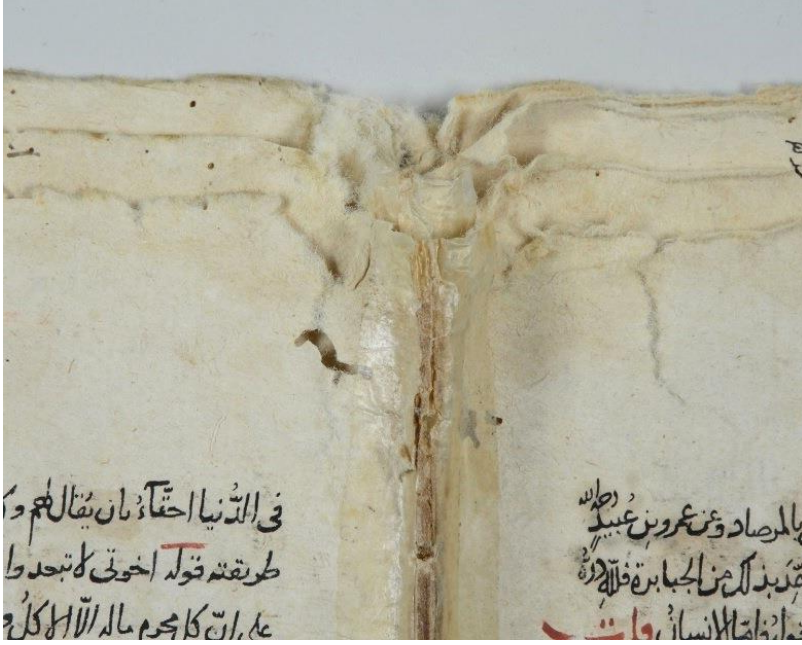 بالمرصاد وعن عمرو بن عُبيدٍ رحمه الله
بذلك من الجبابرة فللّه درّه
قوله فامّا الانسانُ قلت
فى الدُّنيا احقّآءُ بان يُقال لهم
طريقته قوله اخوتى لا تبعدوا
على انّ كل مجرم ماله الّا الاكلُ